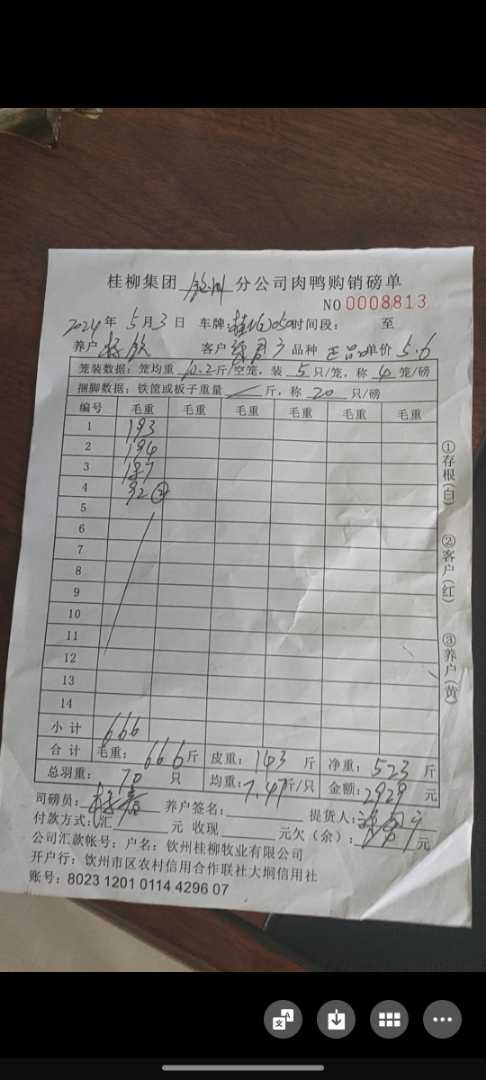 桂柳集团 钦州 分公司肉鸭购销磅单
NO 0008813
2024年5月3日 车牌: 时间段: 至
养户 客户 品种 正品 单价 5.6
笼装数据: 笼均重 10.2斤/空笼, 装 5 只/笼, 称 4 笼/磅
捆脚数据: 铁筐或板子重量 斤, 称 20 只/磅
编号 毛重 毛重 毛重 毛重 毛重 毛重
1 193
2 194
3 187
4 92
5
6
7
8
9
10
11
12
13
14
小计 666
合计 毛重: 666斤 皮重: 143斤 净重: 523斤
总羽重: 70 只 均重: 7.47斤/只 金额: 2929元
司磅员: 养户签名: 提货人:
付款方式: 汇 元 收现 元欠(余): 元
公司汇款帐号: 户名: 钦州桂柳牧业有限公司
开户行: 钦州市区农村信用合作联社大垌信用社
账号: 8023 1201 0114 4296 07
①存根(白) ②客户(红) ③养户(黄)